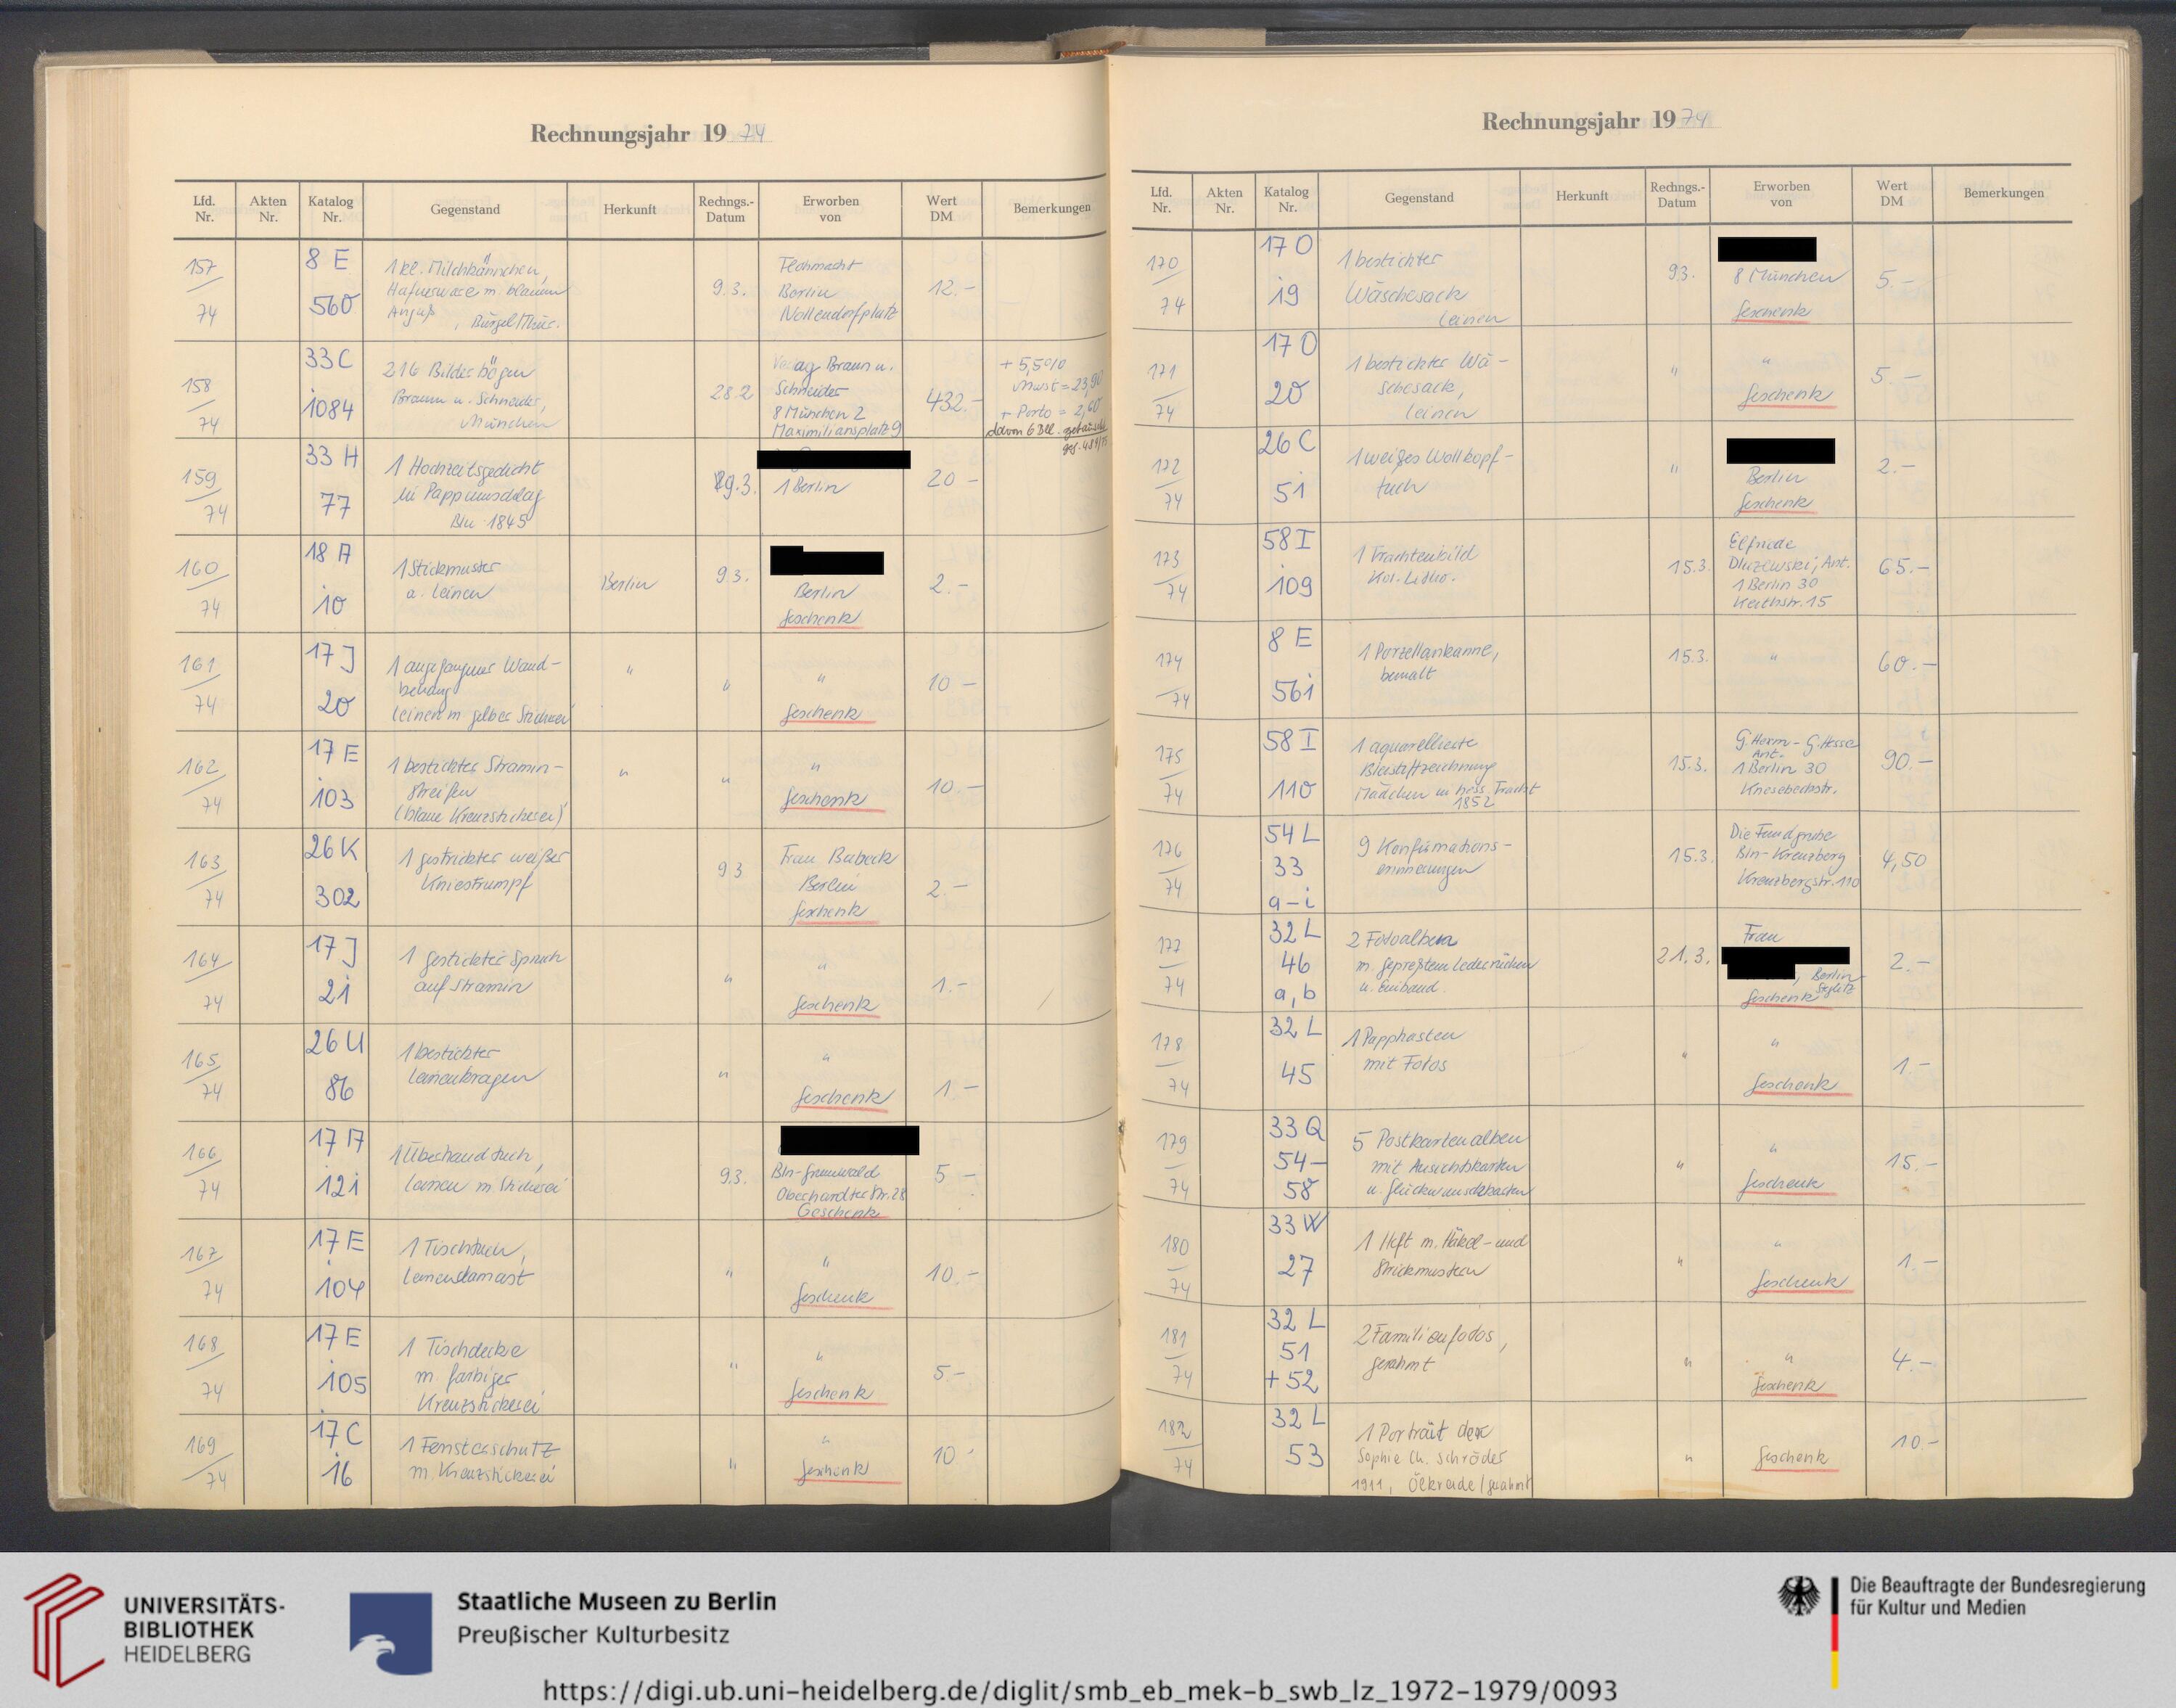 Rechnungsjahr 19 74
Lfd. Nr. Akten Nr. Katalog Nr. Gegenstand Herkunft Rechngs.-Datum Erworben von Wert DM Bemerkungen
157/74 8 E 560 1 kl. Milchkännchen, Hafnerware m. blauem Anguß, Bürgel/Thür. 9.3. Flohmarkt Berlin Nollendorfplatz 12.-
158/74 33 C 1084 216 Bilderbögen Braun u. Schneider, München 28.2 Verlag Braun u. Schneider 8 München 2 Maximiliansplatz 9 432.- + 5,5% Mwst = 23,90 + Porto = 2,60 davon 6 Bll. getauscht
159/74 33 H 77 1 Hochzeitsgedicht in Pappumschlag Bln 1845 9.3. 1 Berlin 20 -
160/74 18 A 10 1 Stickmuster a. Leinen Berlin 9.3. Berlin Geschenk 2.-
161/74 17 J 20 1 angefangener Wandbehang Leinen m gelber Stickerei " " " Geschenk 10 -
162/74 17 E 103 1 bestickter Stramin-streifen (blaue Kreuzstickerei) " " " Geschenk 10.-
163/74 26 K 302 1 gestrickter weißer Kniestrumpf 9 3 Frau Berlin Geschenk 2.-
164/74 17 J 21 1 gestickter Spruch auf Stramin " " Geschenk 1.-
165/74 26 U 86 1 bestickter Leinenkragen " " Geschenk 1 -
166/74 17 A 121 1 Überhandtuch, Leinen m Stickerei 9.3. Bln-Grunewald Geschenk 5 -
167/74 17 E 104 1 Tischtuch, Leinendamast " " Geschenk 10.-
168/74 17 E 105 1 Tischdecke m. farbiger Kreuzstickerei " " Geschenk 5.-
169/74 17 C 16 1 Fensterschutz m. Kreuzstickerei " " Geschenk 10.
Rechnungsjahr 19 74
Lfd. Nr. Akten Nr. Katalog Nr. Gegenstand Herkunft Rechngs.-Datum Erworben von Wert DM Bemerkungen
170/74 17 O 19 1 bestickter Wäschesack Leinen 9 3. 8 München Geschenk 5.-
171/74 17 O 20 1 bestickter Wä-schesack, Leinen " " Geschenk 5.-
172/74 26 C 51 1 weißes Wollkopf-tuch " Berlin Geschenk 2.-
173/74 58 I 109 1 Trachtenbild Kol. Litho. 15.3. Elfriede Dluzewski, Ant. 1 Berlin 30 Keithstr. 15 65.-
174/74 8 E 561 1 Porzellankanne, bemalt 15.3. " 60.-
175/74 58 I 110 1 aquarellierte Bleistiftzeichnung Mädchen in hess. Tracht 1852 15.3. G. Herm - G. Hesse Ant. 1 Berlin 30 Knesebeckstr. 90.-
176/74 54 L 33 a-i 9 Konfirmations-erinnerungen 15.3. Die Fundgrube Bln-Kreuzberg Kreuzbergstr. 110 4,50
177/74 32 L 46 a, b 2 Fotoalben m. gepreßtem Lederrücken u. Einband. 21.3. Frau , Berlin Steglitz Geschenk 2.-
178/74 32 L 45 1 Pappkasten mit Fotos " " Geschenk 1.-
179/74 33 Q 54-58 5 Postkartenalben mit Ansichtskarten u. Glückwunschkarten " " Geschenk 15.-
180/74 33 W 27 1 Heft m. Häkel- und Strickmustern " " Geschenk 1.-
181/74 32 L 51 + 52 2 Familienfotos, gerahmt " " Geschenk 4.-
182/74 32 L 53 1 Porträt der Sophie Ch. Schröder 1911, Ölkreide/gerahmt " Geschenk 10.-
UNIVERSITÄTS-
BIBLIOTHEK
HEIDELBERG
Staatliche Museen zu Berlin
Preußischer Kulturbesitz
Die Beauftragte der Bundesregierung
für Kultur und Medien
https://digi.ub.uni-heidelberg.de/diglit/smb_eb_mek-b_swb_lz_1972-1979/0093